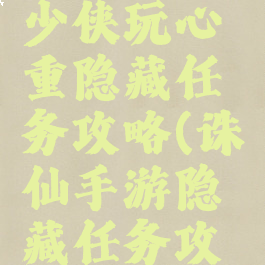 少侠玩心
重隐藏任
务攻略(诛
仙手游隐
藏任务攻